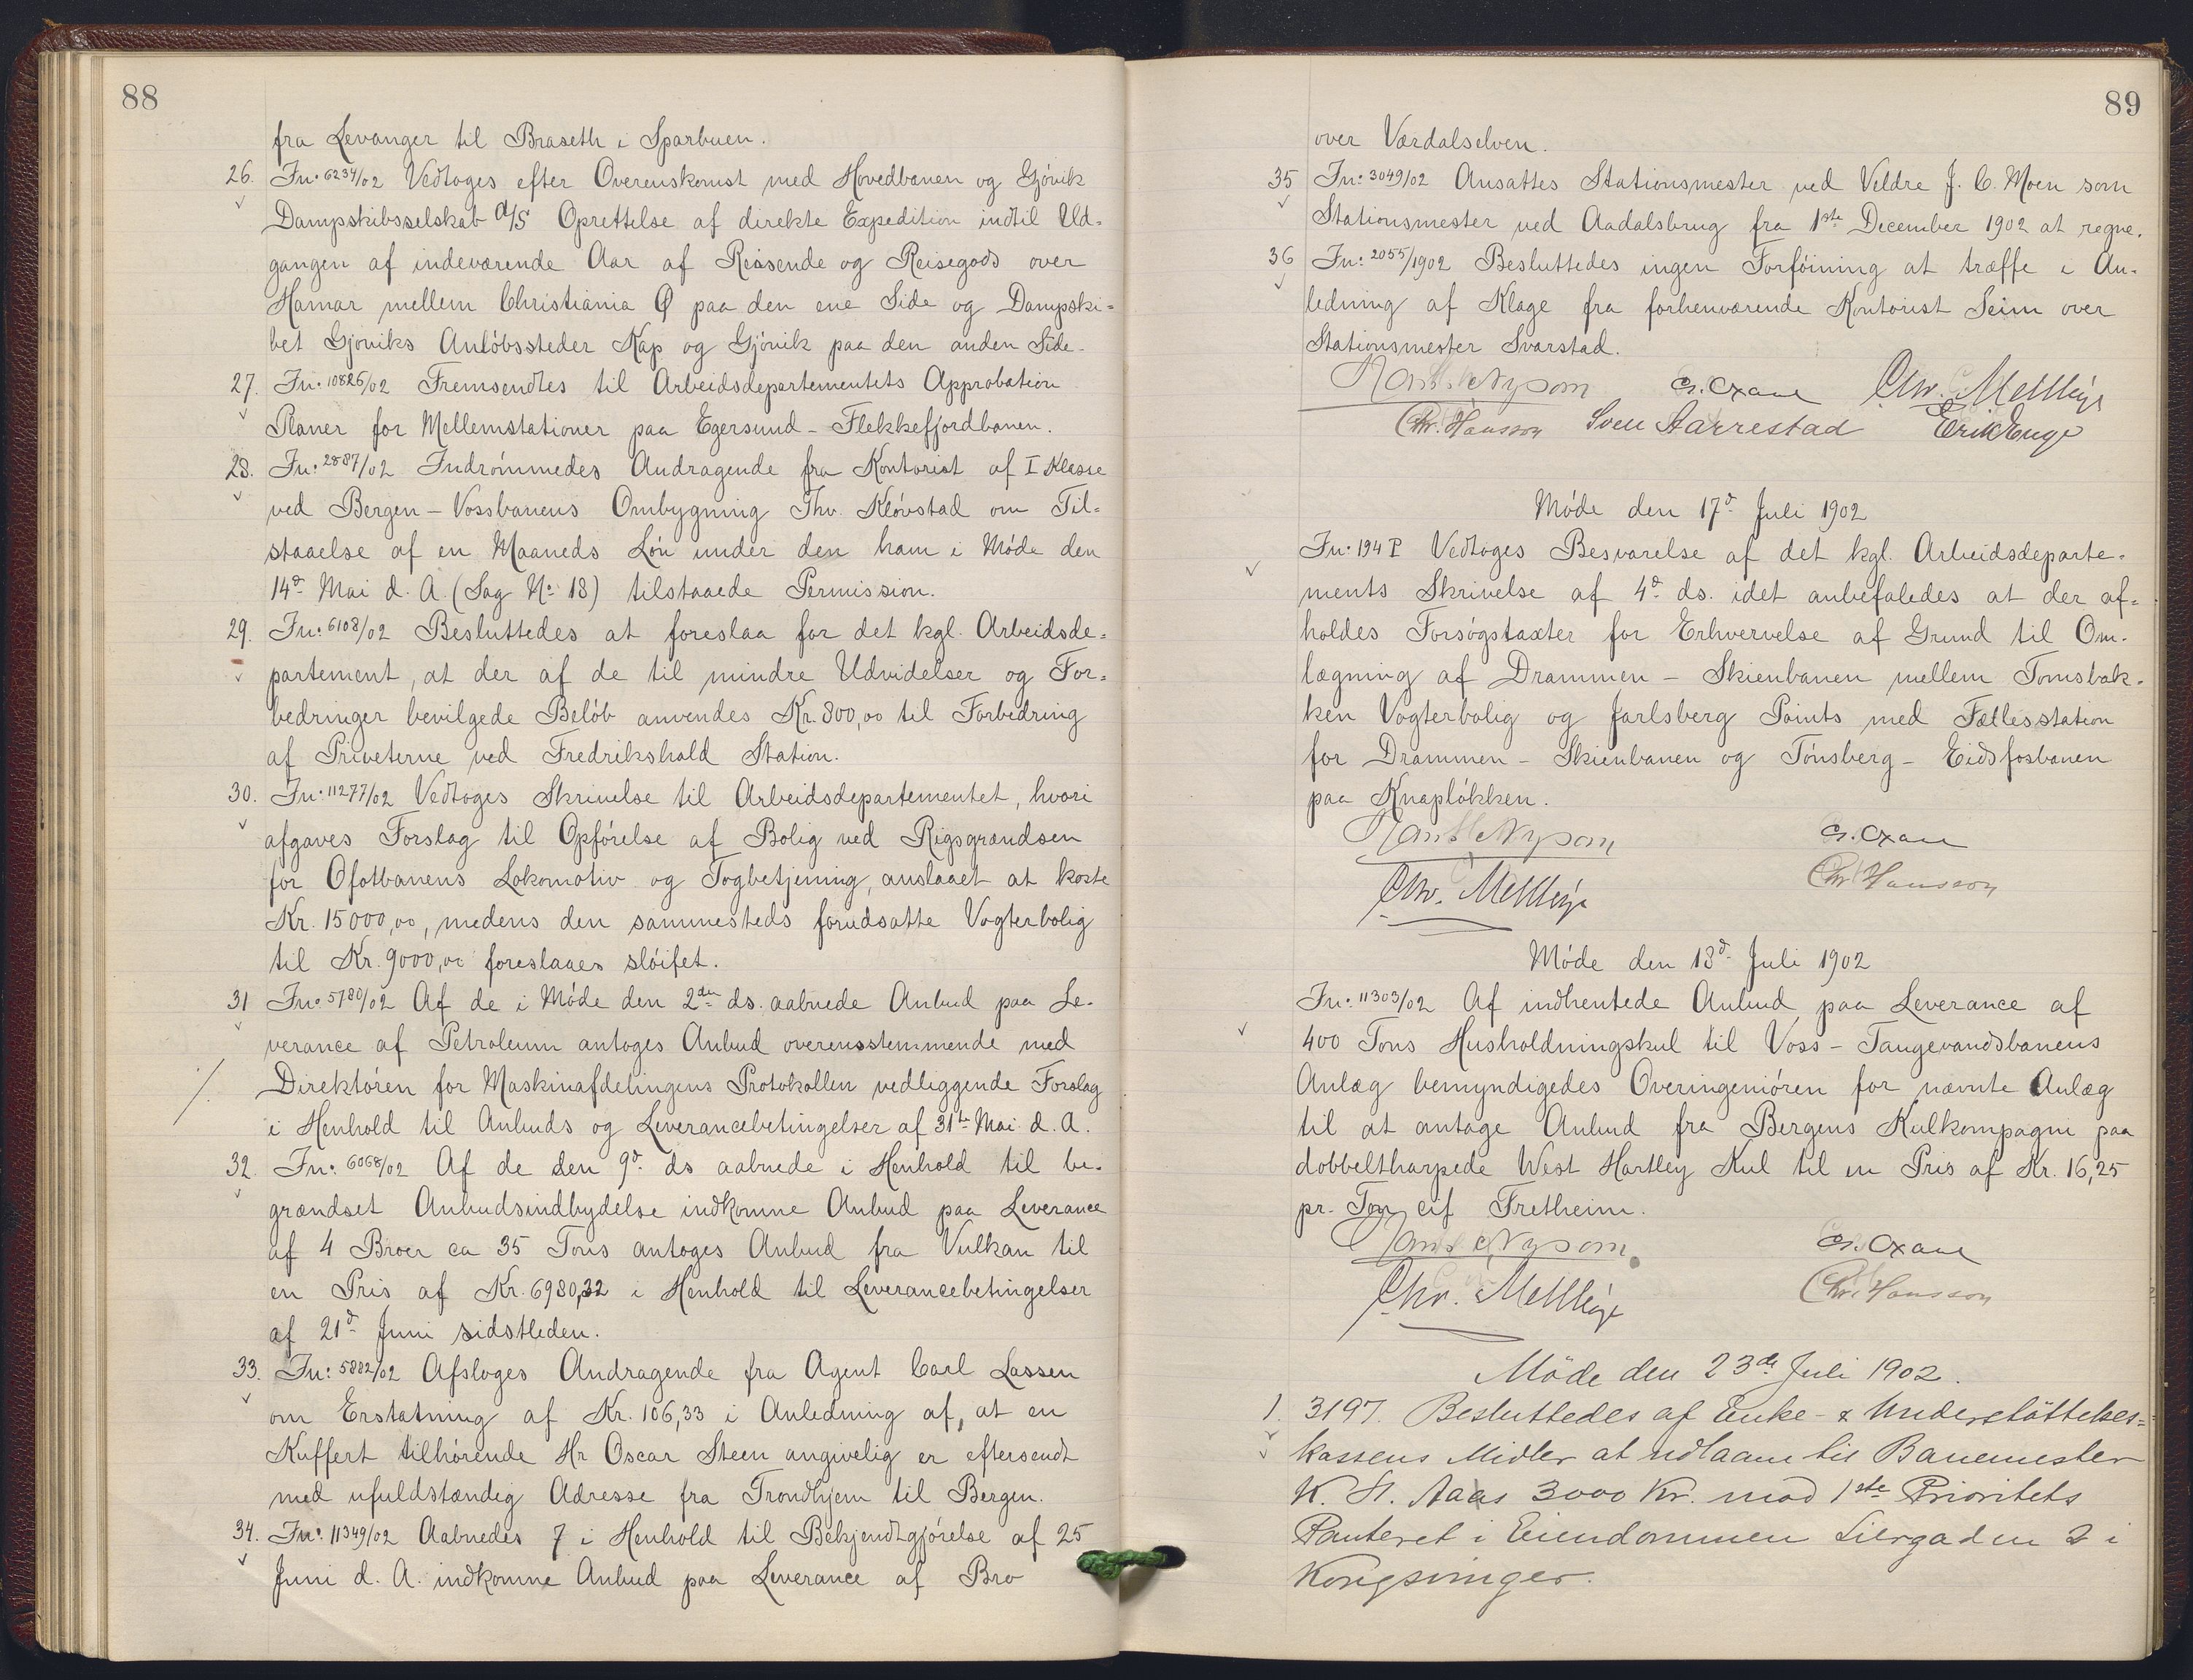 88
fra Levanger til Braseth i Sparbuen.
26. Jn: 6234/02 Vedtoges efter Overenskomst med Hovedbanen og Gjövik
Dampskibsselskab A/S Oprettelse af direkte Expedition indtil Ud=
gangen af indeværende Aar af Reisende og Reisegods over
Hamar mellem Christiania Ø paa den ene Side og Dampski=
bet Gjöviks Anlöbssteder Kap og Gjövik paa den anden Side.
27. Jn: 10826/02 Fremsendtes til Arbeidsdepartementets Approbation
Planer for Mellemstationer paa Egersund - Flekkefjordbanen.
28. Jn: 2887/02 Indrömmedes Andragende fra Kontorist af I Klasse
ved Bergen - Vossbanens Ombygning Thv. Klövstad om Til=
staaelse af en Maaneds Lön under den ham i Möde den
14d Mai d. A. (Sag No 18) tilstaaede Permission.
29. Jn: 6108/02 Besluttedes at foreslaa for det kgl. Arbeidsde=
partement, at der af de til mindre Udvidelser og For=
bedringer bevilgede Belöb anvendes Kr. 800,00 til Forbedring
af Priveterne ved Fredrikshald Station.
30. Jn: 11277/02 Vedtoges Skrivelse til Arbeidsdepartementet, hvori
afgaves Forslag til Opförelse af Bolig ved Rigsgrændsen
for Ofotbanens Lokomotiv og Togbetjening, anslaaet at koste
Kr. 15000,00, medens den sammesteds forudsatte Vogterbolig
til Kr. 9000,00 foreslaaes slöifet.
31 Jn: 5780/02 Af de i Möde den 2den ds. aabnede Anbud paa Le=
verance af Petroleum antoges Anbud overensstemmende med
./. Direktören for Maskinafdelingens Protokollen vedliggende Forslag
i Henhold til Anbuds og Leverancebetingelser af 31te Mai d. A.
32. Jn: 6068/02 Af de den 9d ds aabnede i Henhold til be=
grændset Anbudsindbydelse indkomne Anbud paa Leverance
af 4 Broer ca 35 Tons antoges Anbud fra Vulkan til
en Pris af Kr. 6980,32 i Henhold til Leverancebetingelser
af 21d Juni sidstleden.
33. Jn: 5882/02 Afsloges Andragende fra Agent Carl Lassen
om Erstatning af Kr. 106,33 i Anledning af, at en
Kuffert tilhörende Hr Oscar Steen angivelig er eftersendt
med ufuldstændig Adresse fra Trondhjem til Bergen.
34. Jn: 11349/02 Aabnedes 7 i Henhold til Bekjendtgjörelse af 25
Juni d. A. indkomne Anbud paa Leverance af Bro
89
over Værdalselven.
35 Jn: 3049/02 Ansattes Stationsmester ved Veldre J. C. Moen som
Stationsmester ved Aadalsbrug fra 1ste December 1902 at regne.
36 Jn: 2055/1902 Besluttedes ingen Forföining at træffe i An=
ledning af Klage fra forhenværende Kontorist Seim over
Stationsmester Svarstad.
Hans Nysom G. Oxaal Chr. Mellbye
Chr. Hansson Sven Aarrestad Erik Enge
Möde den 17d Juli 1902
Jn: 194 P Vedtoges Besvarelse af det kgl. Arbeidsdeparte=
ments Skrivelse af 4d ds. idet anbefaledes at der af=
holdes Forsögstaxter for Erhvervelse af Grund til Om=
lægning af Drammen - Skienbanen mellem Tomsbak=
ken Vogterbolig og Jarlsberg Points med Fællesstation
for Drammen - Skienbanen og Tönsberg - Eidsfosbanen
paa Knaplökken.
Hans Nysom G. Oxaal
Chr. Mellbye Chr Hansson
Möde den 18d Juli 1902
Jn: 11303/02 Af indhentede Anbud paa Leverance af
400 Tons Husholdningskul til Voss - Taugevandsbanens
Anlæg bemyndigedes Overingeniören for nævnte Anlæg
til at antage Anbud fra Bergens Kulkompagni paa
dobbeltharpede West Hartley Kul til en Pris af Kr. 16,25
pr. Ton cif Fretheim.
Hans Nysom G. Oxaal
Chr. Mellbye Chr. Hansson
Möde den 23de Juli 1902.
1. 3197. Besluttedes af Enke- & Understöttelses=
kassens Midler at udlaane til Banemester
K. St. Aas 3000 Kr. mod 1ste Prioritets
Panteret i Eiendommen Liergaden 2 i
Kongsvinger.